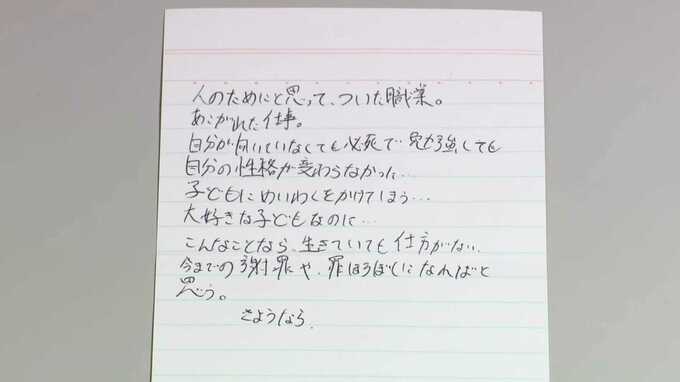 人のためにと思って、ついた職業。
あこがれた仕事。
自分が向いていなくても必死で勉強しても
自分の性格が変わらなかった…
子どもにめいわくをかけてしまう…
大好きな子どもなのに…
こんなことなら、生きていても仕方がない。
今までの謝罪や、罪ほろぼしになればと
思う。
さようなら.